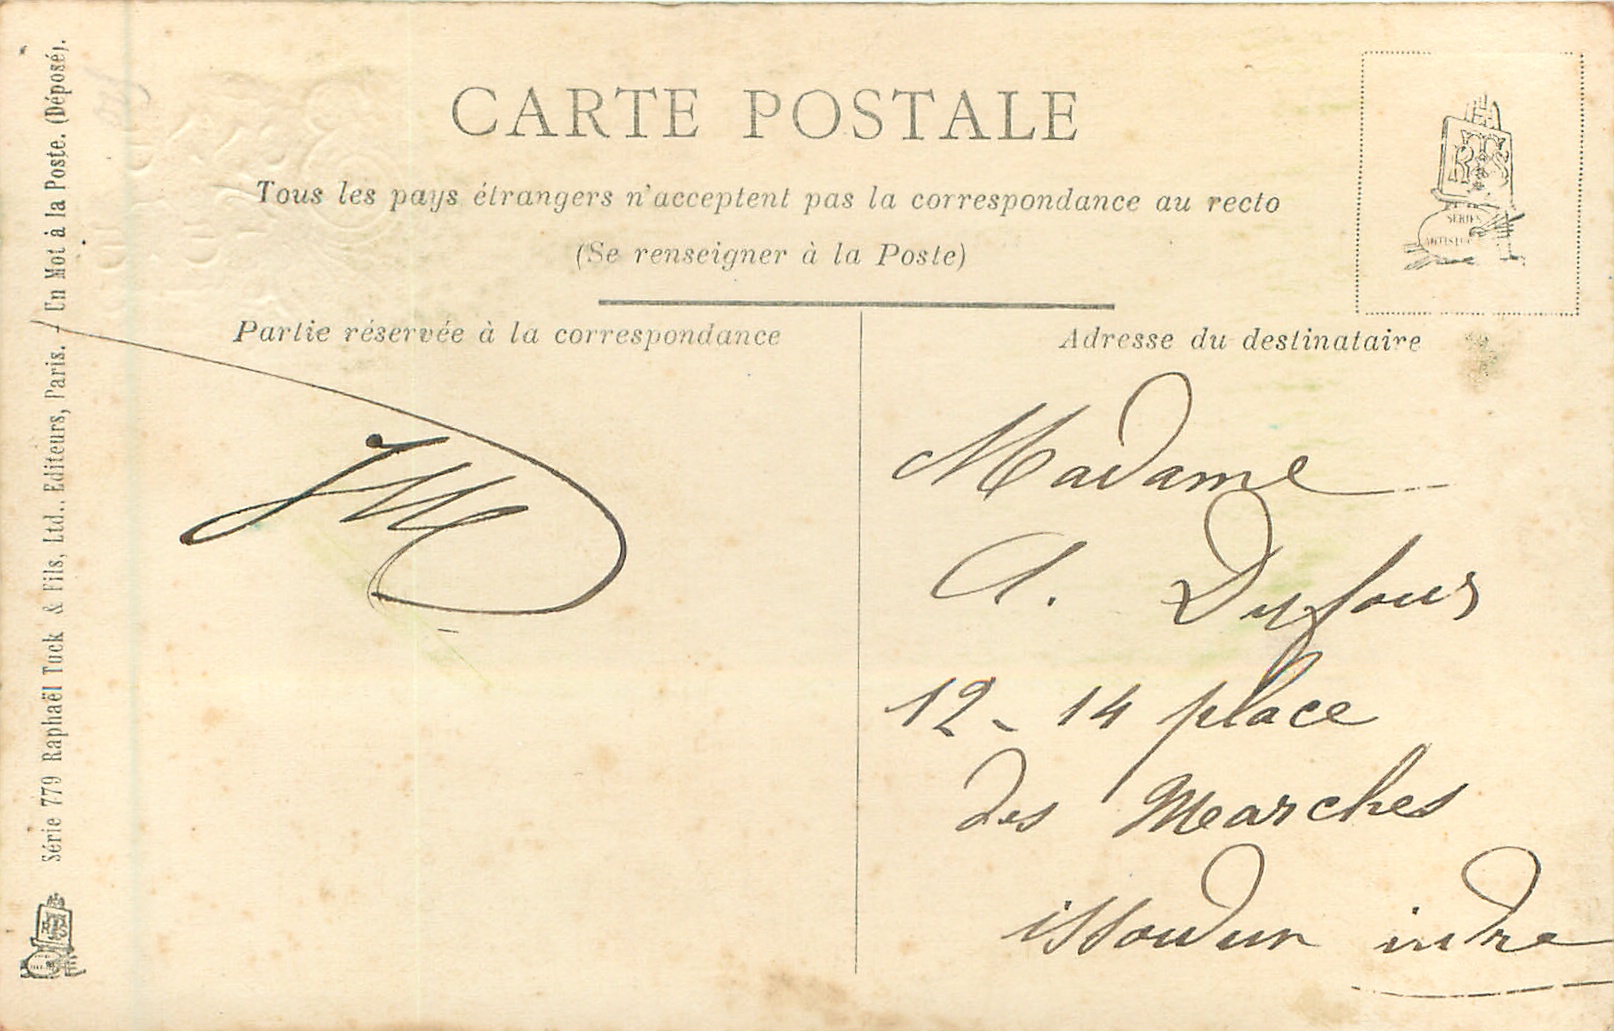 CARTE POSTALE
Tous les pays étrangers n'acceptent pas la correspondance au recto
(Se renseigner à la Poste)
Partie réservée à la correspondance
Adresse du destinataire
Madame
A. Dufour
12 - 14 place
des Marches
issoudun indre
Série 779 Raphaël Tuck & Fils, Ltd., Editeurs, Paris. - Un Mot à la Poste. (Déposé).
RTS
SERIES
ARTISTIC